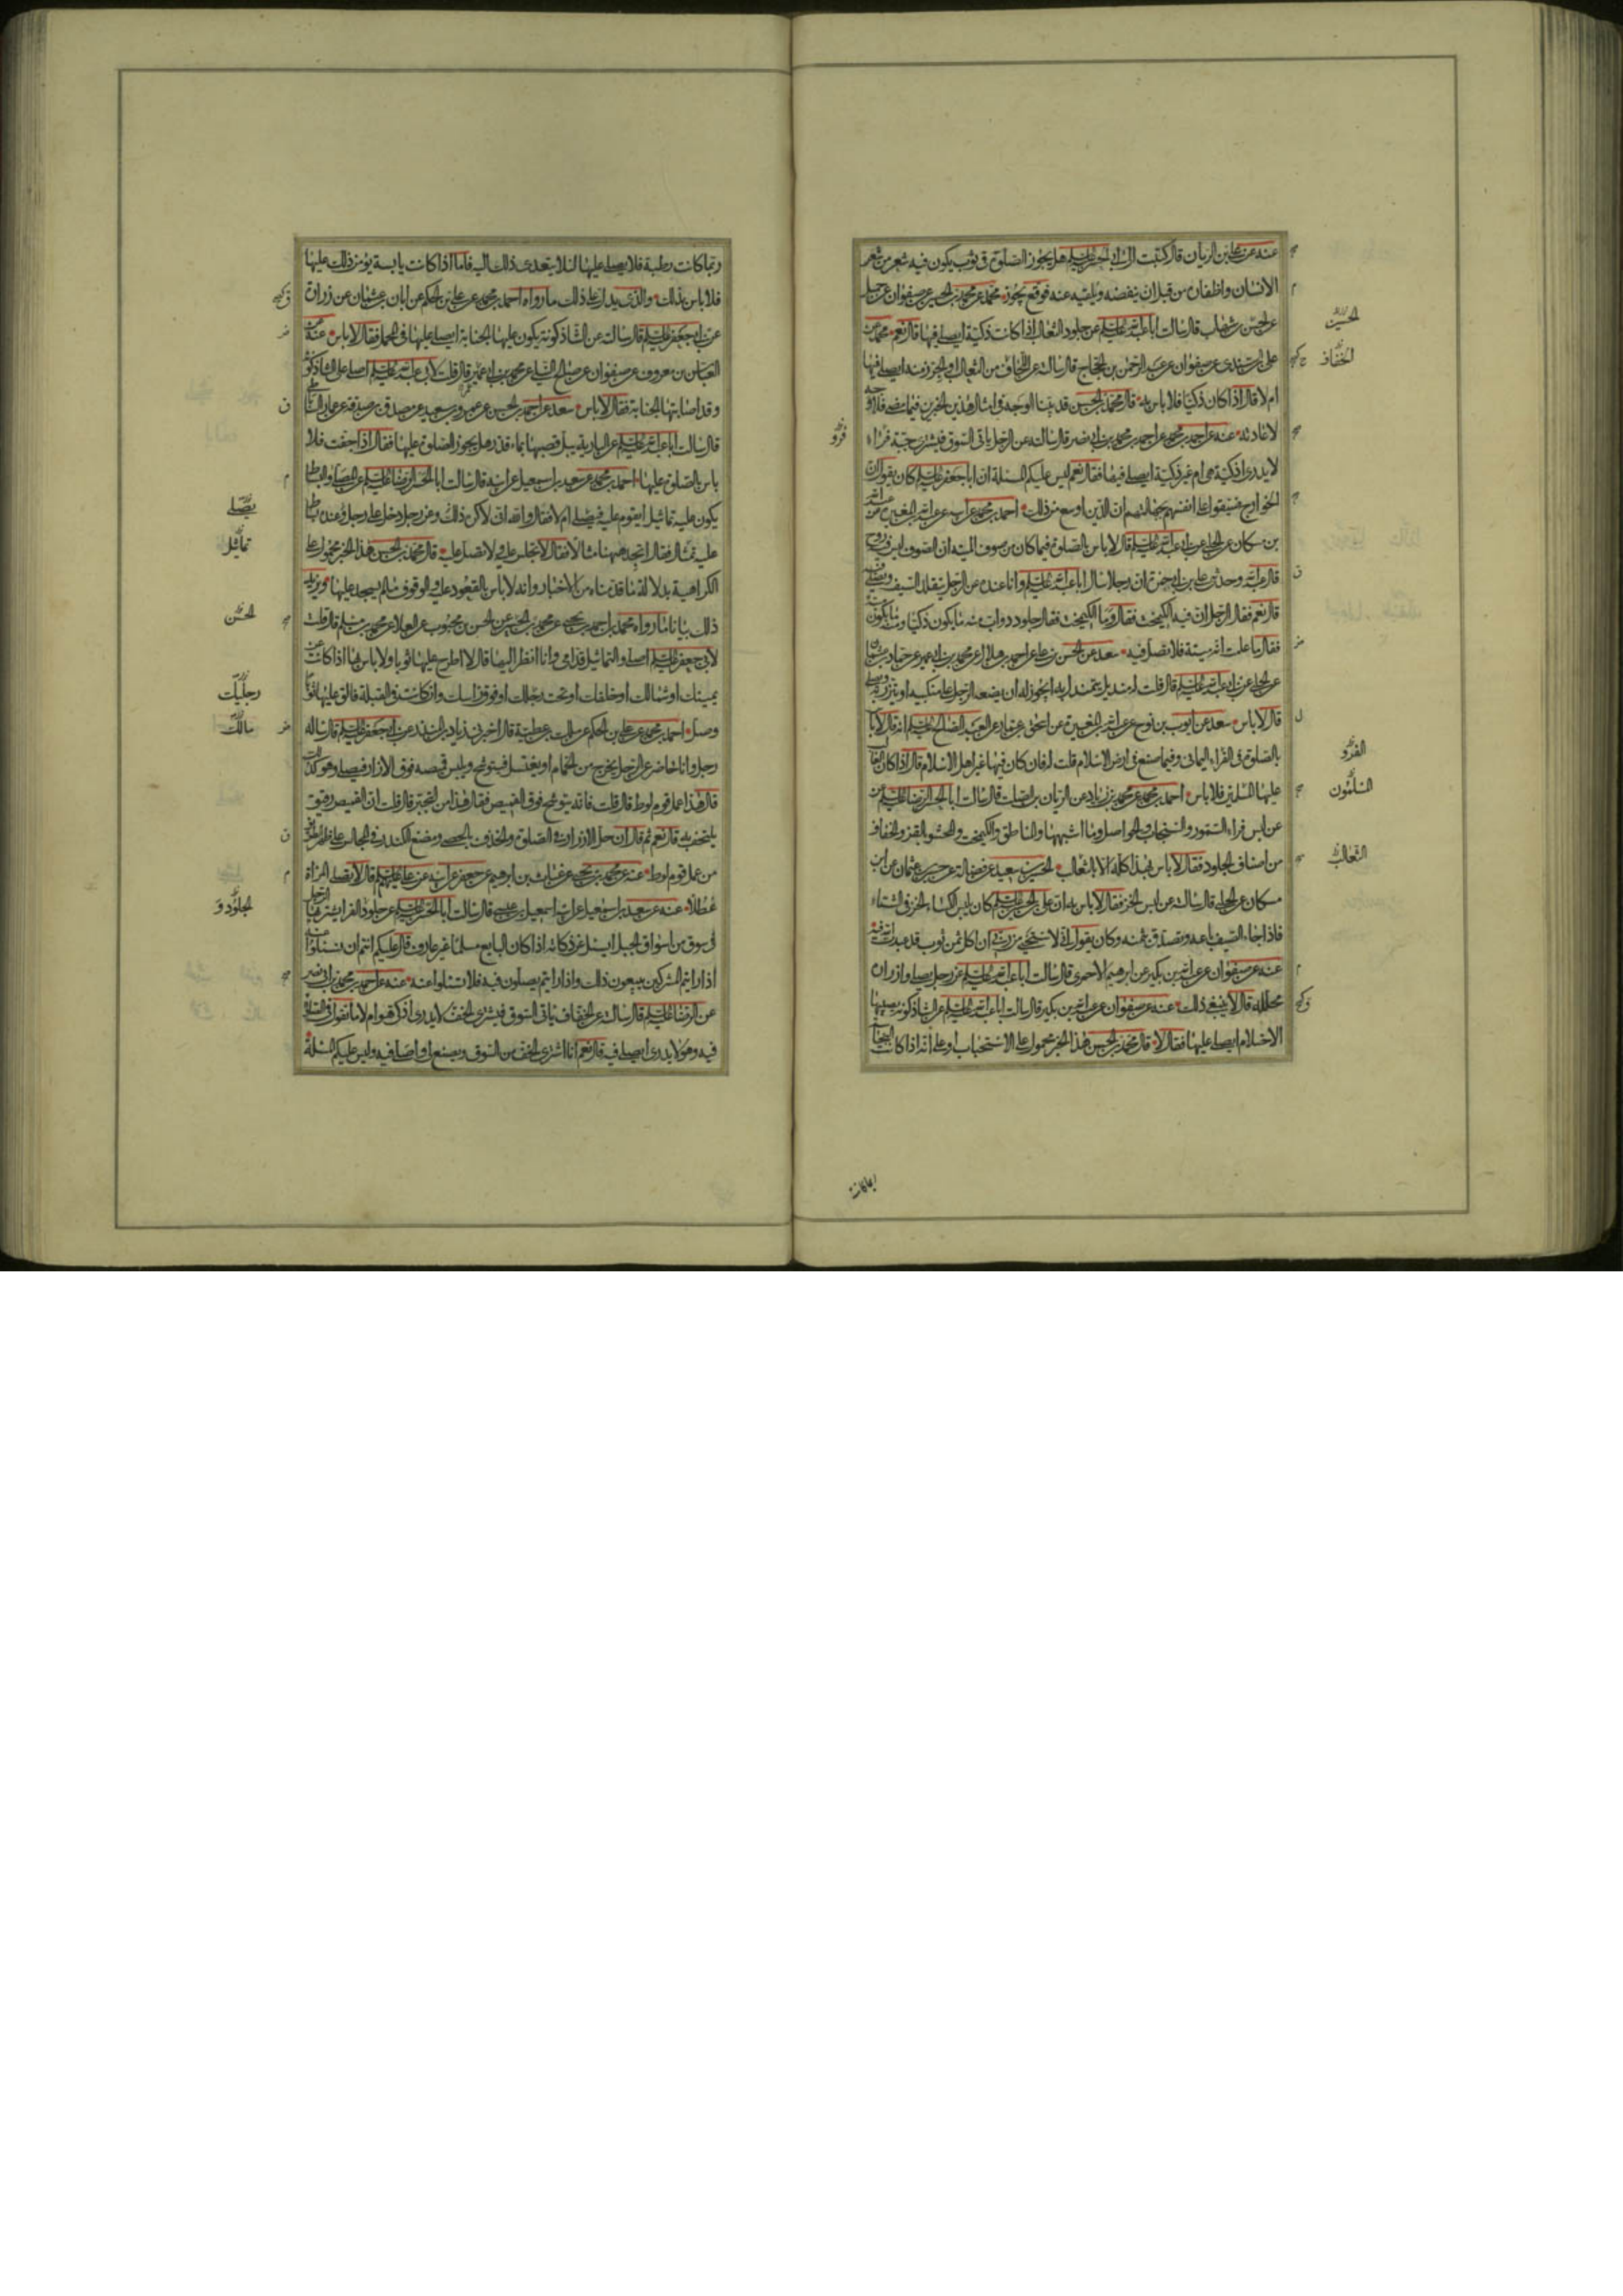 عنه عن علي بن الريان قال كتبت الى ابي الحسن عليه السلم هل يجوز الصلوة في ثوب يكون فيه شعر من شعر
الانسان واظفاره من قبل ان ينفضه ويلقيه عنه فوقع يجوز محمد عن محمد بن الحسين عن صفوان عن جميل
عن الحسن بن شهاب قال سالت ابا عبد الله عليه السلم عن جلود الثعالب اذا كانت ذكية ايصلى فيها قال نعم محمد عن
علي بن السندي عن صفوان عن عبد الرحمن بن الحجاج قال سالته عن اللحاف من الثعالب او الجرز منه ايصلى فيها
ام لا قال اذا كان ذكيا فلا باس به قال محمد بن الحسن قد بينا الوجه في امثال هذين الخبرين فيما مضى فلا وجه
لاعادته عنه عن احمد بن محمد عن احمد بن محمد بن ابي نصر قال سالته عن الرجل ياتي السوق فيشترى جبة فراء
لا يدرى اذكية هي ام غير ذكية ايصلي فيها فقال نعم ليس عليكم المسئلة ان ابا جعفر عليه السلم كان يقول ان
الخوارج ضيقوا على انفسهم بجهالتهم ان الدين اوسع من ذلك احمد بن محمد عن ابيه عن عبد الله بن المغيرة عن عبد الله
بن مسكان عن الحلبي عن ابي عبد الله عليه السلم قال لا باس بالصلوة فيما كان من صوف الميتة ان الصوف ليس فيه روح
قال عبد الله وحدثني علي بن ابي حمزة ان رجلا سال ابا عبد الله عليه السلم وانا عنده عن الرجل يتقلد السيف ويصلي فيه
قال نعم فقال الرجل ان فيه الكيمخت فقال وما الكيمخت فقال جلود دواب منه ما يكون ذكيا ومنه ما يكون ميتة
فقال ما علمت انه ميتة فلا تصل فيه سعد عن الحسن بن علي عن احمد بن هلال عن محمد بن ابي عمير عن حماد بن عثمان
عن الحلبي عن ابي عبد الله عليه السلم قال قلت له منديل يتمندل به ايجوز له ان يضعه الرجل على منكبيه او يتزر به ويصلي
قال لا باس سعد عن ايوب بن نوح عن عبد الله بن المغيرة عن اسحق بن عمار عن العبد الصالح عليه السلم انه قال لا باس
بالصلوة في الفراء اليماني وفيما صنع في ارض الاسلام قلت له فان كان فيها غير اهل الاسلام قال اذا كان الغالب
عليها المسلمين فلا باس احمد بن محمد عن محمد بن زياد عن الريان بن الصلت قال سالت ابا الحسن الرضا عليه السلم عن
عن لبس فراء السمور والسنجاب والحواصل وما اشبهها والمناطق والكيمخت والمحشو بالقز والخفاف
من اصناف الجلود فقال لا باس بهذا كله الا بالثعالب الحسين بن سعيد عن فضالة عن حسين بن عثمان عن ابن
مسكان عن الحلبي قال سالته عن لبس الخز فقال لا باس به ان علي بن الحسين عليه السلم كان يلبس الكساء الخز في الشتاء
فاذا جاء الصيف باعه وتصدق بثمنه وكان يقول اني لاستحيي من ربي ان اكل ثمن ثوب قد عبدت الله فيه
عنه عن صفوان عن عبد الله بن بكير عن ابرهيم الاحمري قال سالت ابا عبد الله عليه السلم عن رجل يصلي وازراره
محللة قال لا ينبغي ذلك عنه عن صفوان عن عبد الله بن بكير قال سالت ابا عبد الله عليه السلم عن الشاذكونة يصيبها
الاحتلام ايصلى عليها فقال لا قال محمد بن الحسن هذا الخبر محمول على الاستحباب او على انه اذا كانت
الحسين
الخفاف
فرو
الفرو
المسلمون
الثعالب
ربما كانت رطبة فلا يصلى عليها لئلا يتعدى ذلك اليه فاما اذا كانت يابسة يؤمن ذلك عليها
فلا باس بذلك والذي يدل على ذلك ما رواه احمد بن محمد عن علي بن الحكم عن ابان بن عثمان عن زرارة
عن ابي جعفر عليه السلم قال سالته عن الشاذكونة يكون عليها الجنابة ايصلى عليها في المحمل فقال لا باس عنه عن
العباس بن معروف عن صفوان عن صالح النيلي عن محمد بن ابي عمير قال قلت لابي عبد الله عليه السلم اصلي على الشاذكونة
وقد اصابتها الجنابة فقال لا باس سعد عن احمد بن الحسن عن عمرو بن سعيد عن مصدق بن صدقة عن عمار الساباطي
قال سالت ابا عبد الله عليه السلم عن البارية يبل قصبها بماء قذر هل يجوز الصلوة عليها فقال اذا جفت فلا
باس بالصلوة عليها احمد بن محمد عن سعد بن اسمعيل عن ابيه قال سالت ابا الحسن الرضا عليه السلم عن المصلى والبساط
يكون عليه تماثيل ايقوم عليه فيصلي ام لا فقال والله اني لاكره ذلك وعن رجل دخل على رجل وعنده بساط
عليه تمثال فقال اتجد ههنا مثالا فقال لا تجلس عليه ولا تصل عليه قال محمد بن الحسن هذا الخبر محمول على
الكراهية بدلالة ما قدمناه من الاخبار وانه لا باس بالقعود عليه والوقوف ما لم يسجد عليها ويزيد
ذلك بيانا ما رواه محمد بن احمد بن يحيى عن محمد بن الحسين عن الحسن بن محبوب عن العلا عن محمد بن مسلم قال قلت
لابي جعفر عليه السلم اصلي والتماثيل قدامي وانا انظر اليها قال لا اطرح عليها ثوبا ولا باس بها اذا كانت عن
يمينك او شمالك او خلفك او تحت رجلك او فوق راسك وان كانت في القبلة فالق عليها ثوبا
وصل احمد بن محمد عن علي بن الحكم عن مالك بن عطية قال اخبرني زياد بن المنذر عن ابي جعفر عليه السلم قال ساله
رجل وانا حاضر عن الرجل يخرج من الحمام او يغتسل فيتوشح ويلبس قميصه فوق الازار فيصلي وهو كذلك
قال هذا عمل قوم لوط قال قلت فانه يتوشح فوق القميص فقال هذا من التجبر قال قلت ان القميص رقيق
يلتحف به قال نعم ثم قال ان حل الازرار في الصلوة والخذف بالحصى ومضغ الكندر في المجالس على ظهر الطريق
من عمل قوم لوط عنه عن محمد بن يحيى عن غياث بن ابرهيم عن جعفر عن ابيه عن علي عليهم السلم قال لا يصلي المراة
عطلا عنه عن سعد بن اسمعيل عن ابيه اسمعيل بن عيسى قال سالت ابا الحسن عليه السلم عن جلود الفراء يشتريها الرجل
في سوق من اسواق الجبل ايسئل عن ذكاته اذا كان البايع مسلما غير عارف قال عليكم انتم ان تسئلوا عنه
اذا رايتم المشركين يبيعون ذلك واذا رايتم يصلون فيه فلا تسئلوا عنه عنه عن احمد بن محمد بن ابي نصر
عن الرضا عليه السلم قال سالته عن الخفاف ياتي السوق فيشترى الخف لا يدرى اذكي هو ام لا ما تقول في الصلوة
فيه وهو لا يدرى ايصلي فيه قال نعم انا اشترى الخف من السوق ويصنع لي واصلي فيه وليس عليكم المسئلة
يصلى
تماثيل
الحسن
رجليك
مالك
الجلود و